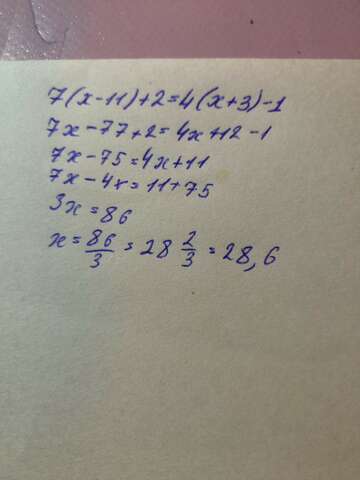 7(x-11)+2=4(x+3)-1
7x-77+2=4x+12-1
7x-75=4x+11
7x-4x=11+75
3x=86
x=86/3=28 2/3=28,6